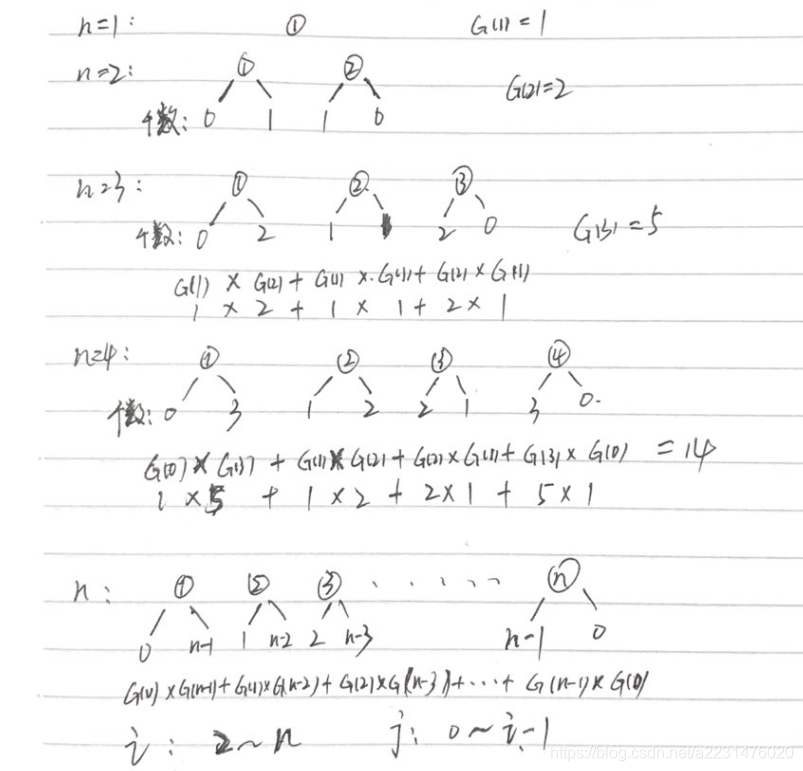 n=1: ① G(1)=1
n=2: ① ② G(2)=2
个数: 0 1 1 0
n=3: ① ② ③
个数: 0 2 1 2 0 G(3)=5
G(1) × G(2) + G(1) × G(1) + G(2) × G(1)
1 × 2 + 1 × 1 + 2 × 1
n=4: ① ② ③ ④
个数: 0 3 1 2 2 1 3 0
G(0) × G(3) + G(1) × G(2) + G(2) × G(1) + G(3) × G(0) = 14
1 × 5 + 1 × 2 + 2 × 1 + 5 × 1
n: ① ② ③ ······ ⓝ
0 n-1 1 n-2 2 n-3 n-1 0
G(0) × G(n-1) + G(1) × G(n-2) + G(2) × G(n-3) + ··· + G(n-1) × G(0)
i: 2~n j: 0~i-1
https://blog.csdn.net/a2231476020